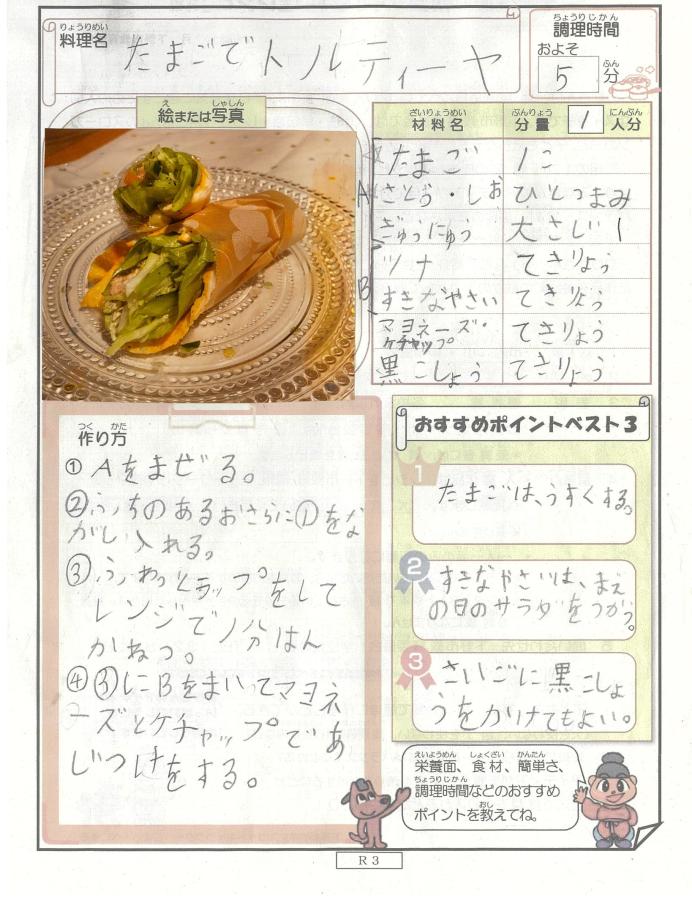 りょうりめい
料理名
たまごでトルティーヤ
ちょうりじかん
調理時間
およそ
5 分
ふん
え しゃしん
絵または写真
ざいりょうめい
材料名
ぶんりょう
分量 1 人分
にんぶん
A
たまご 1こ
さとう・しお ひとつまみ
ぎゅうにゅう 大さじ1
B
ツナ てきりょう
すきなやさい てきりょう
マヨネーズ・ケチャップ てきりょう
黒こしょう てきりょう
つく かた
作り方
① Aをまぜる。
②ふちのあるおさらに①をな
がし入れる。
③ふわっとラップをして
レンジで1分はん
かねつ。
④③にBをまいてマヨネ
ーズとケチャップであ
じつけをする。
おすすめポイントベスト3
1
たまごは、うすくする。
2
すきなやさいは、まえ
の日のサラダをつかう。
3
さいごに黒こしょ
うをかけてもよい。
えいようめん しょくざい かんたん
栄養面、食材、簡単さ、
ちょうりじかん
調理時間などのおすすめ
おし
ポイントを教えてね。
R3